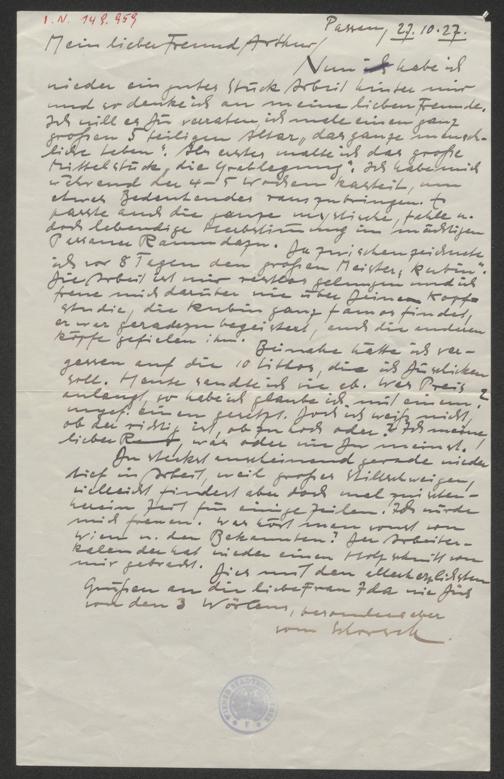 I. N. 149.959
Passau, 27.10.27.
Mein lieber Freund Arthur,
Nun habe ich
wieder ein gutes Stück Arbeit hinter mir
und so denke ich an meine lieben Freunde.
Ich will es Dir verraten ich male einen ganz
großen 5 teiligen Altar, „das ganze mensch-
liche Leben". Als erstes malte ich das große
Mittelstück, „die Grablegung". Ich habe mich
während der 4–5 Wochen kasteit, um
etwas Bedeutendes rauszubringen. Es
passte auch die ganze mystische, fahle u.
doch lebendige Herbststimmung im mächtigen
Passauer Raum dazu. Dazwischen zeichnete
ich vor 8 Tagen den großen Meister „Kubin".
Die Arbeit ist mir restlos gelungen und ich
freue mich darüber wie über Deinen Kopf-
studie, die Kubin ganz famos findet,
er war geradezu begeistert, auch die anderen
Köpfe gefielen ihm. Beinahe hätte ich ver-
gessen auf die 10 Lithos, die ich Dir schicken
soll. Heute sandte ich sie ab. Was Preis
anlangt, so habe ich glaube ich, mit einem ?
ungef. einen gesetzt. Doch ich weiß nicht,
ob der richtig ist, ob zu hoch oder? Ich meine
lieber, was oder wie Du meinst.
Du steckst anscheinend gerade wieder
tief in Arbeit, weil großes Stillschweigen,
vielleicht findest aber doch mal zwischen-
hinein Zeit für einige Zeilen. Ich würde
mich freuen. Was hört man sonst von
Wien u. den Bekannten? Der Arbeiter-
kalender hat wieder einen Holzschnitt von
mir gebracht. Dies mit den allerherzlichsten
Grüßen an die liebe Frau Ida wie Dich
von den 3 Wörlens, besonders aber
vom Schorsch.